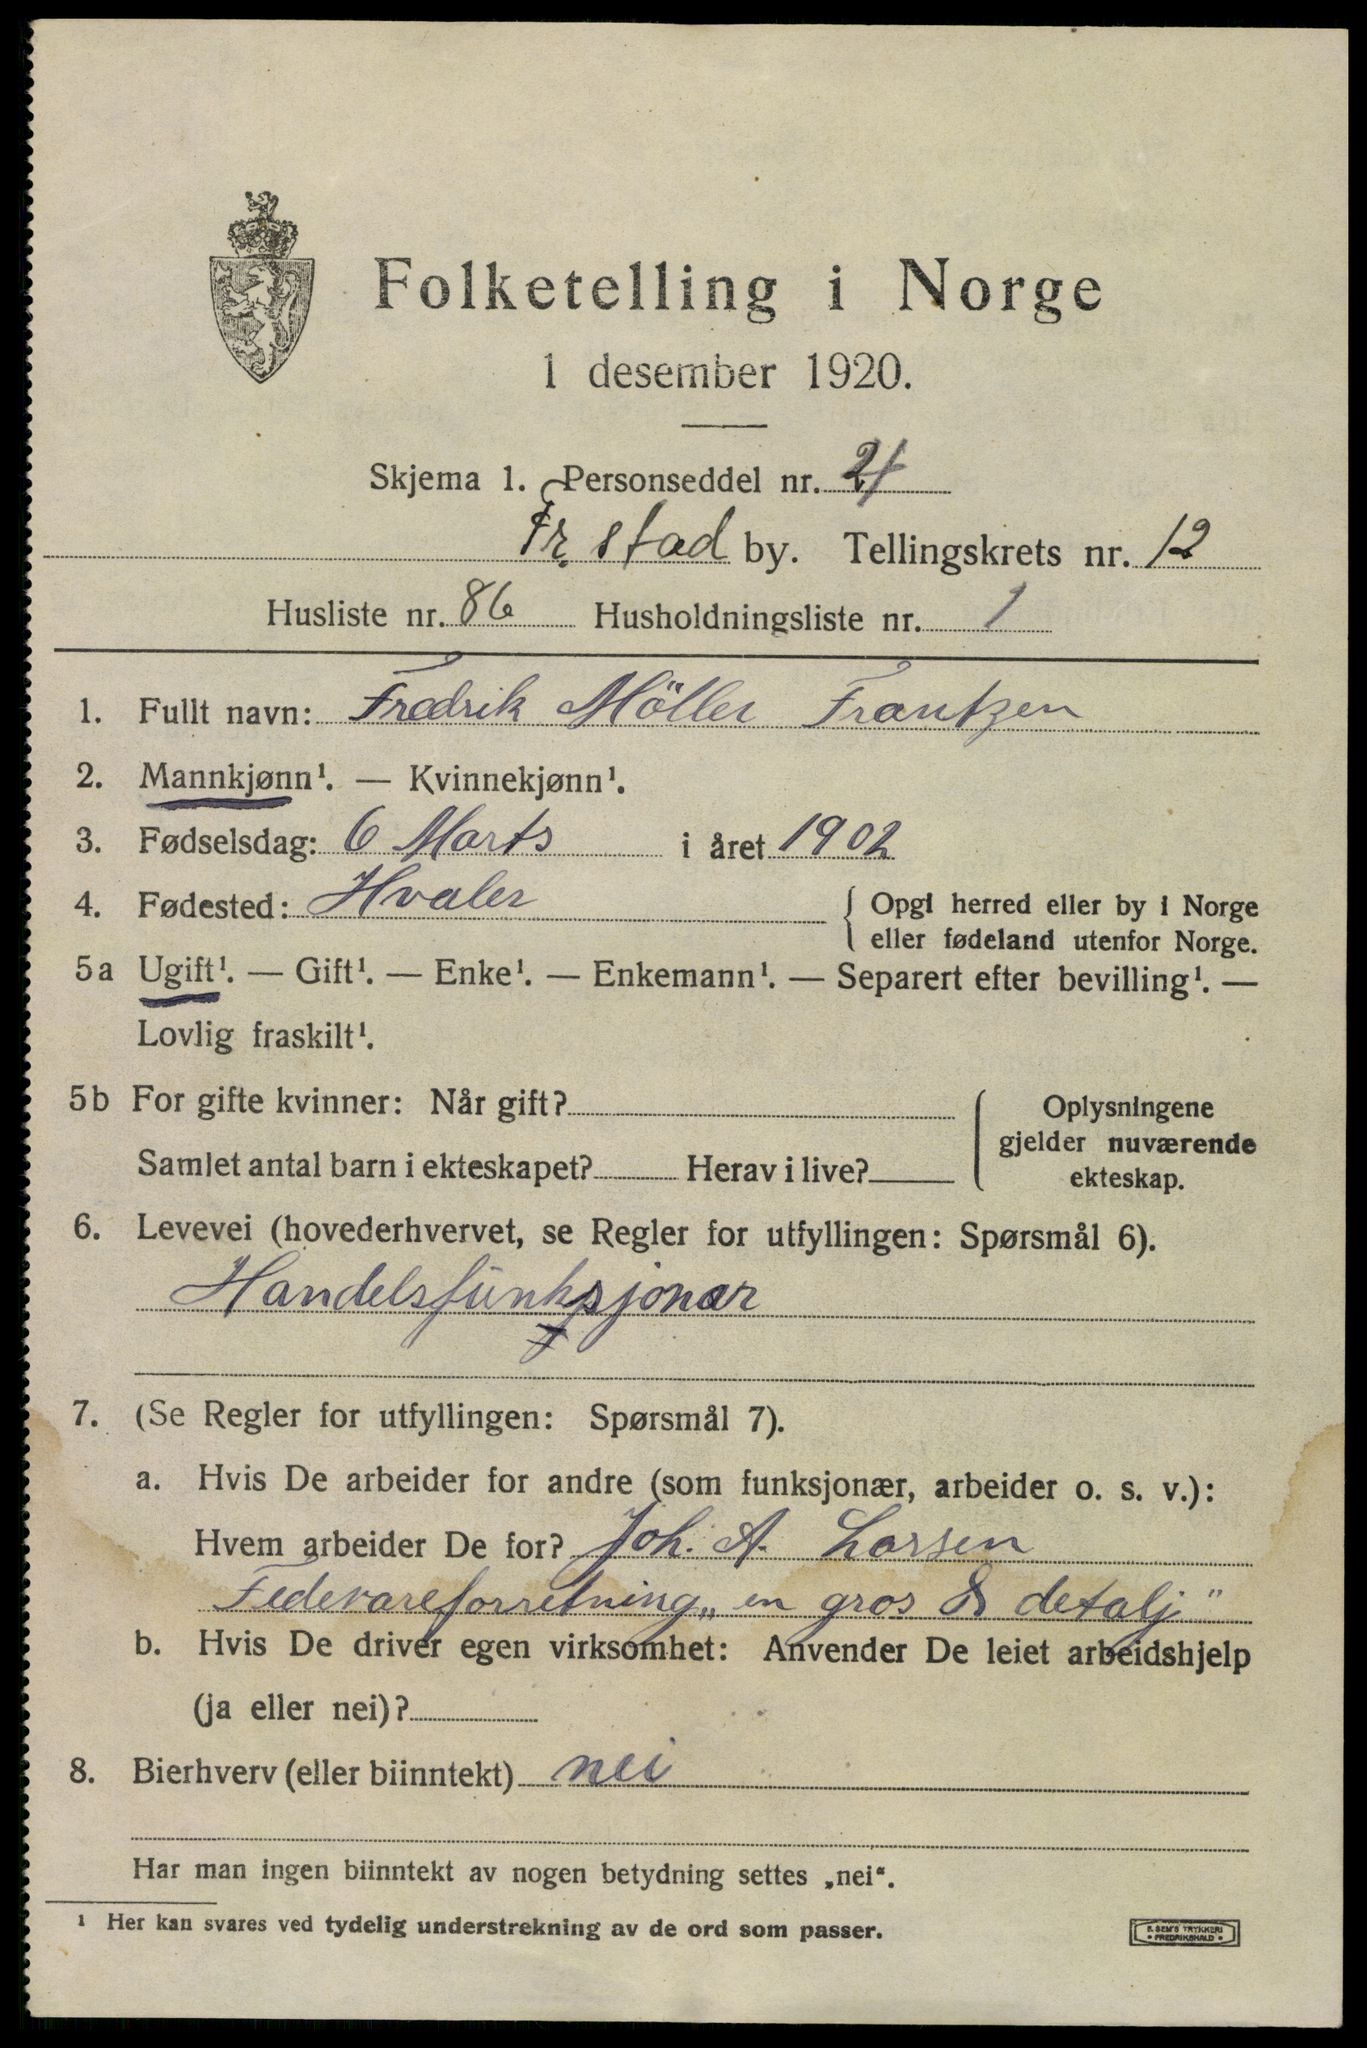 Folketelling i Norge
1 desember 1920.
Skjema 1. Personseddel nr.
Fr.stad by. Tellingskrets nr. 12
Husliste nr. 86 Husholdningsliste nr. 1
1. Fullt navn: Fredrik Möller Frantzen
2. Mannkjønn¹. — Kvinnekjønn¹.
3. Fødselsdag: 6 Marts i året 1902
4. Fødested: Hvaler { Opgi herred eller by i Norge
eller fødeland utenfor Norge.
5a Ugift¹. — Gift¹. — Enke¹. — Enkemann¹. — Separert efter bevilling¹. —
Lovlig fraskilt¹.
5b For gifte kvinner: Når gift? { Oplysningene
gjelder nuværende
Samlet antal barn i ekteskapet? Herav i live?
ekteskap.
6. Levevei (hovederhvervet, se Regler for utfyllingen: Spørsmål 6).
Handelsfunksjonær
7. (Se Regler for utfyllingen: Spørsmål 7).
a. Hvis De arbeider for andre (som funksjonær, arbeider o. s. v.):
Hvem arbeider De for? Joh. A. Larsen
Fedevareforretning „en gros & detalj"
b. Hvis De driver egen virksomhet: Anvender De leiet arbeidshjelp
(ja eller nei)?
8. Bierhverv (eller biinntekt) nei
Har man ingen biinntekt av nogen betydning settes „nei“.
¹ Her kan svares ved tydelig understrekning av de ord som passer.
E. SEM'S TRYKKERI
• FREDRIKSHALD •